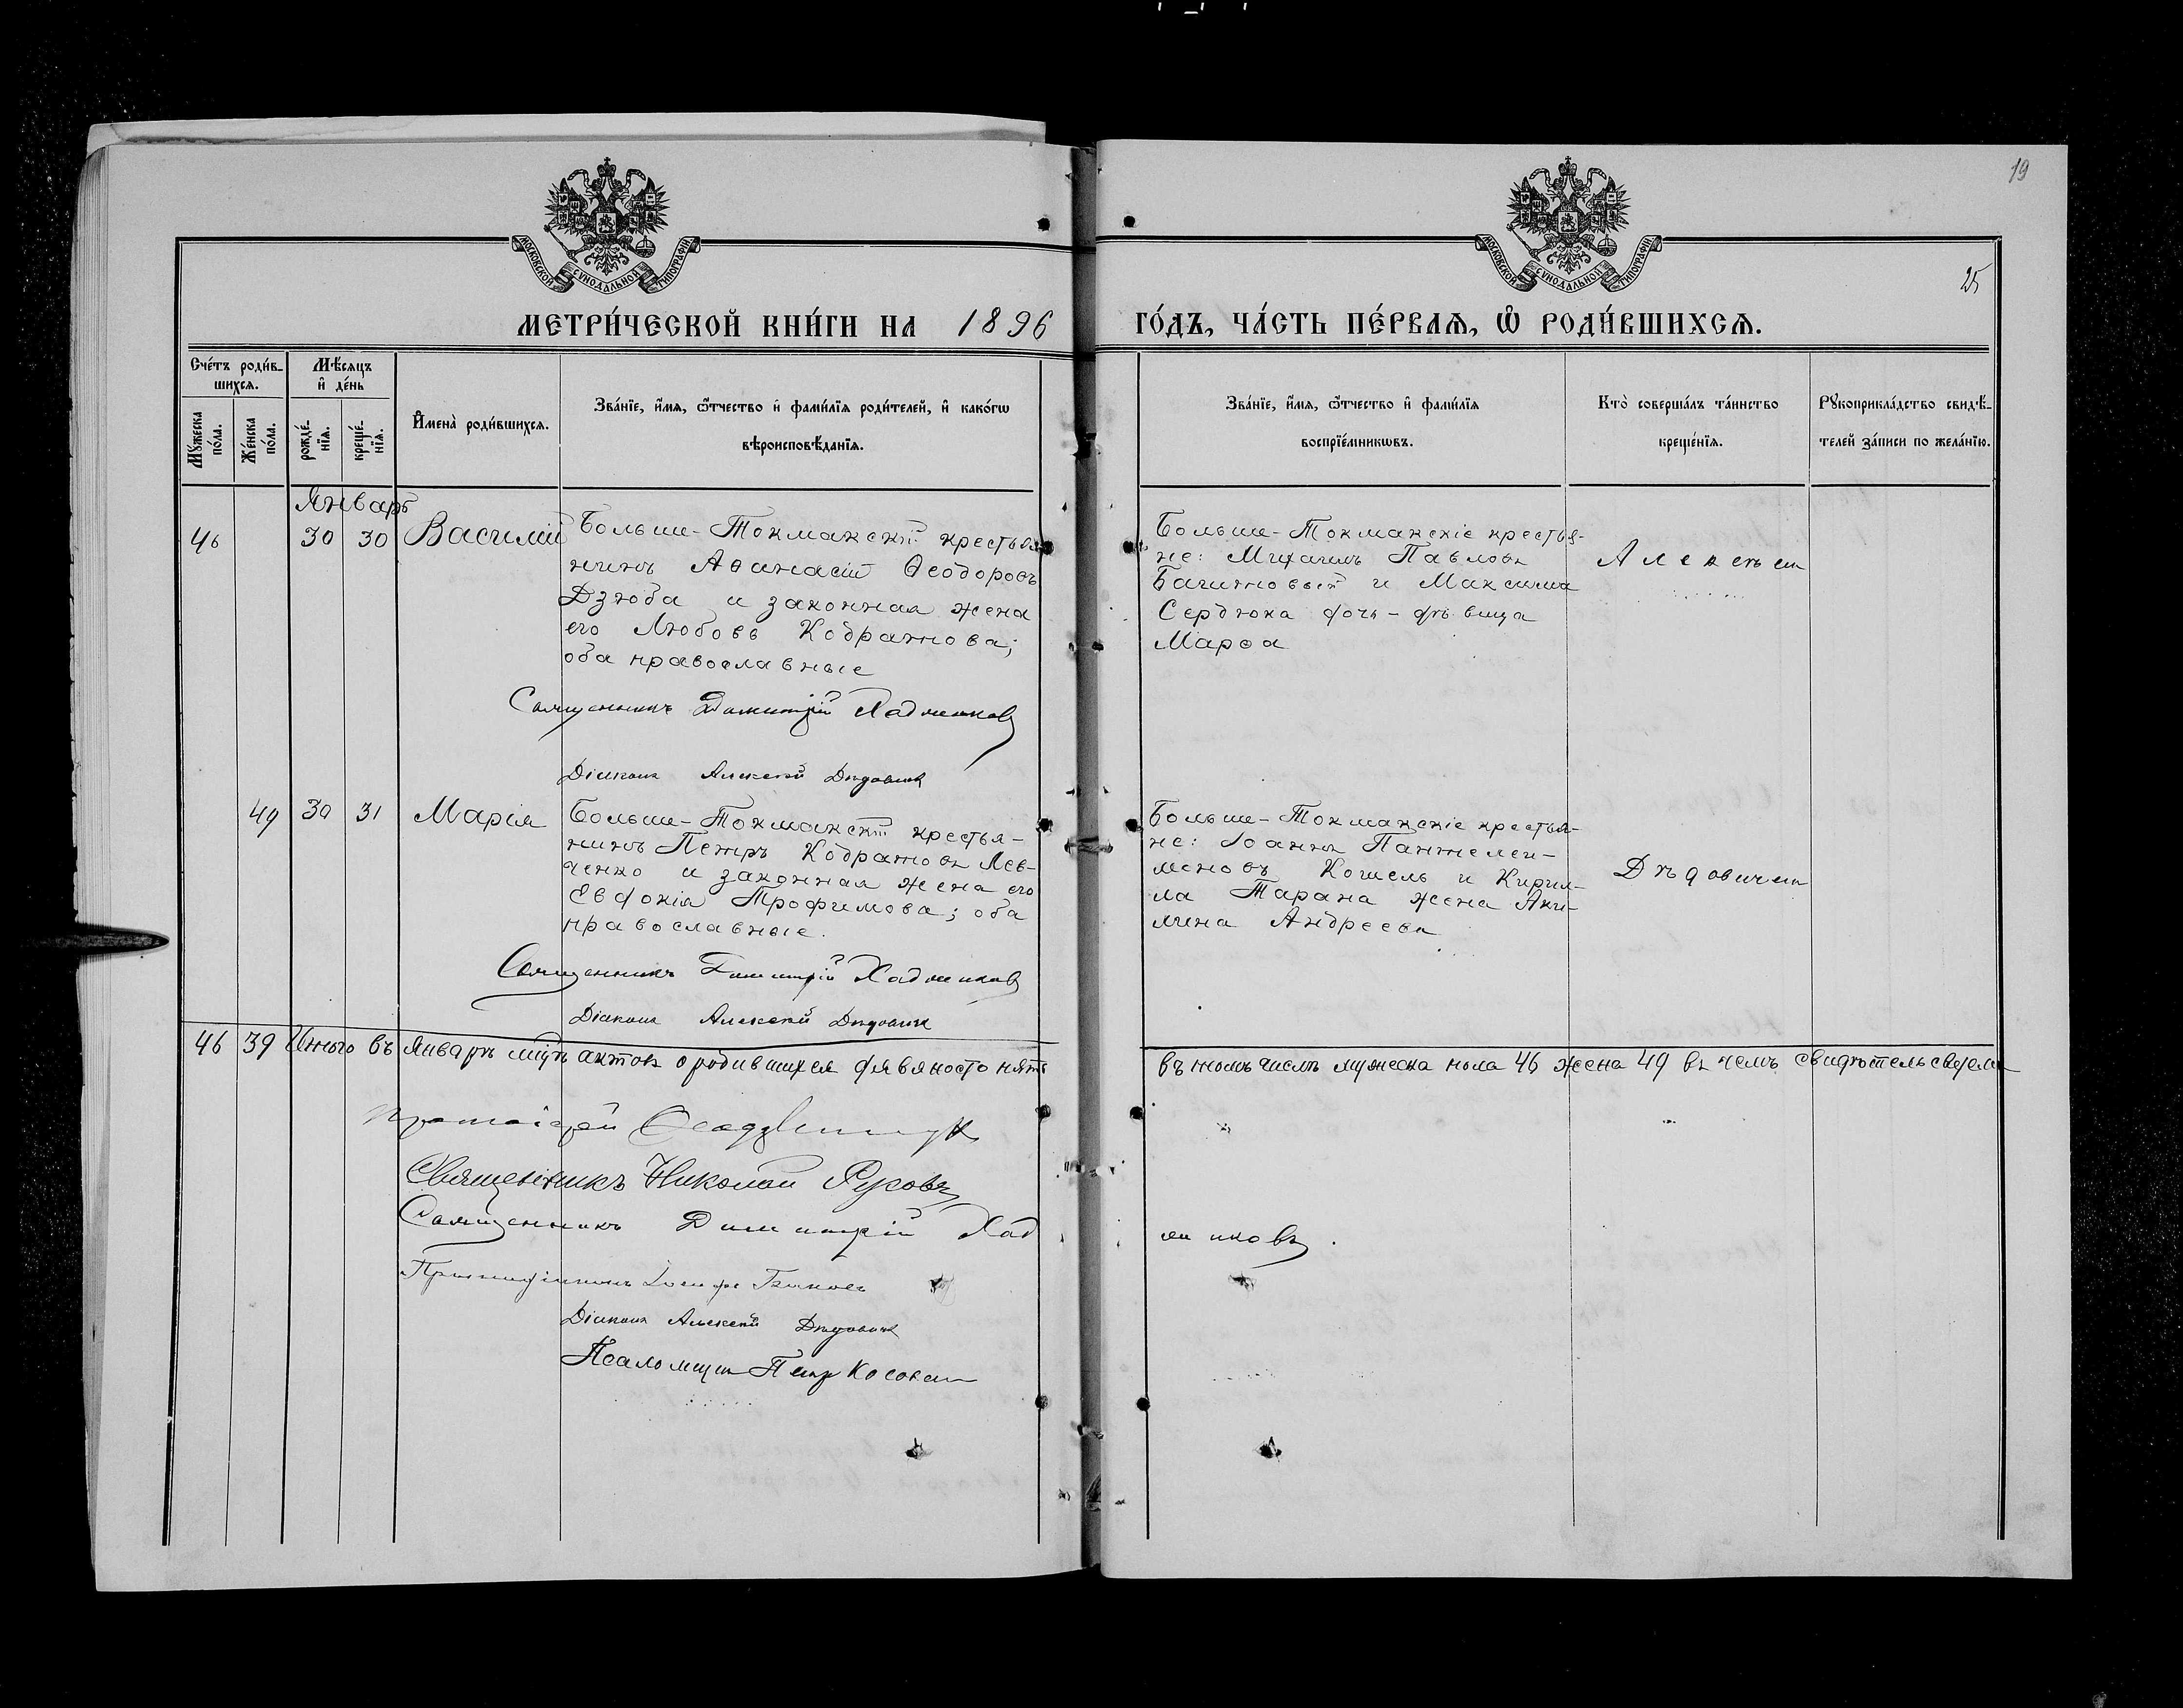 19
МОСКОВСКОЙ СУНОДАЛЬНОЙ ТИПОГРАФІИ
МОСКОВСКОЙ СУНОДАЛЬНОЙ ТИПОГРАФІИ
25
МЕТРИ́ЧЕСКОЙ КНИ́ГИ НА 1896
ГО́ДЪ, ЧА́СТЬ ПЕ́РВАѦ, Ѽ РОДИ́ВШИХСѦ.
Сче́тъ роди́в-
шихсѧ.
Мѣ́сѧцъ
и҆ де́нь
Мꙋ́жеска
по́ла.
Же́нска
по́ла.
рожде́-
нїѧ.
креще́-
нїѧ.
И҆мена̀ роди́вшихсѧ.
Зва́нїе, и҆́мѧ, ѻ҆́тчество и҆ фами́лїѧ роди́телей, и҆ како́гѡ
вѣроисповѣ́данїѧ.
Зва́нїе, и҆́мѧ, ѻ҆́тчество и҆ фами́лїѧ
воспрїе́мникѡвъ.
Кто̀ соверша́лъ та́инство
креще́нїѧ.
Рꙋкоприкла́дство свидѣ́-
телей за́писи по жела́нїю.
Январь
46 30 30 Василий
Больше-Токмакскій крестья-
нинъ Аѳанасій Ѳеодоровъ
Дзюба и законная жена
его Любовь Кодратова;
оба православные
Священникъ Димитрій Хаджиновъ
Діаконъ Алексѣй Дѣдович
Больше-Токмакскіе крестья-
не: Михаилъ Павловъ
и Максима
Сердюка дочь-дѣвица
Марѳа
49 30 31 Марія
Больше-Токмакскій крестья-
нинъ Петръ Кодратовъ Лев-
ченко и законная жена его
Евдокія Трофимова; оба
православные.
Священникъ Димитрій Хаджиновъ
Діаконъ Алексѣй Дѣдович
Больше-Токмакскіе крестья-
не: Іоаннъ Пантелей-
моновъ Кошель и Кирил-
ла Тарана жена Аки-
лина Андреева
46 39 Итого въ Январѣ мцѣ актовъ о родившихся девяносто пять
въ томъ числѣ мужеска пола 46 жена 49 въ чемъ свидѣтельствуемъ
Протоіерей
Священникъ Николай
Священникъ Димитрій Хад
жиновъ.
Діаконъ Алексѣй Дѣдович
Псаломщикъ Петр